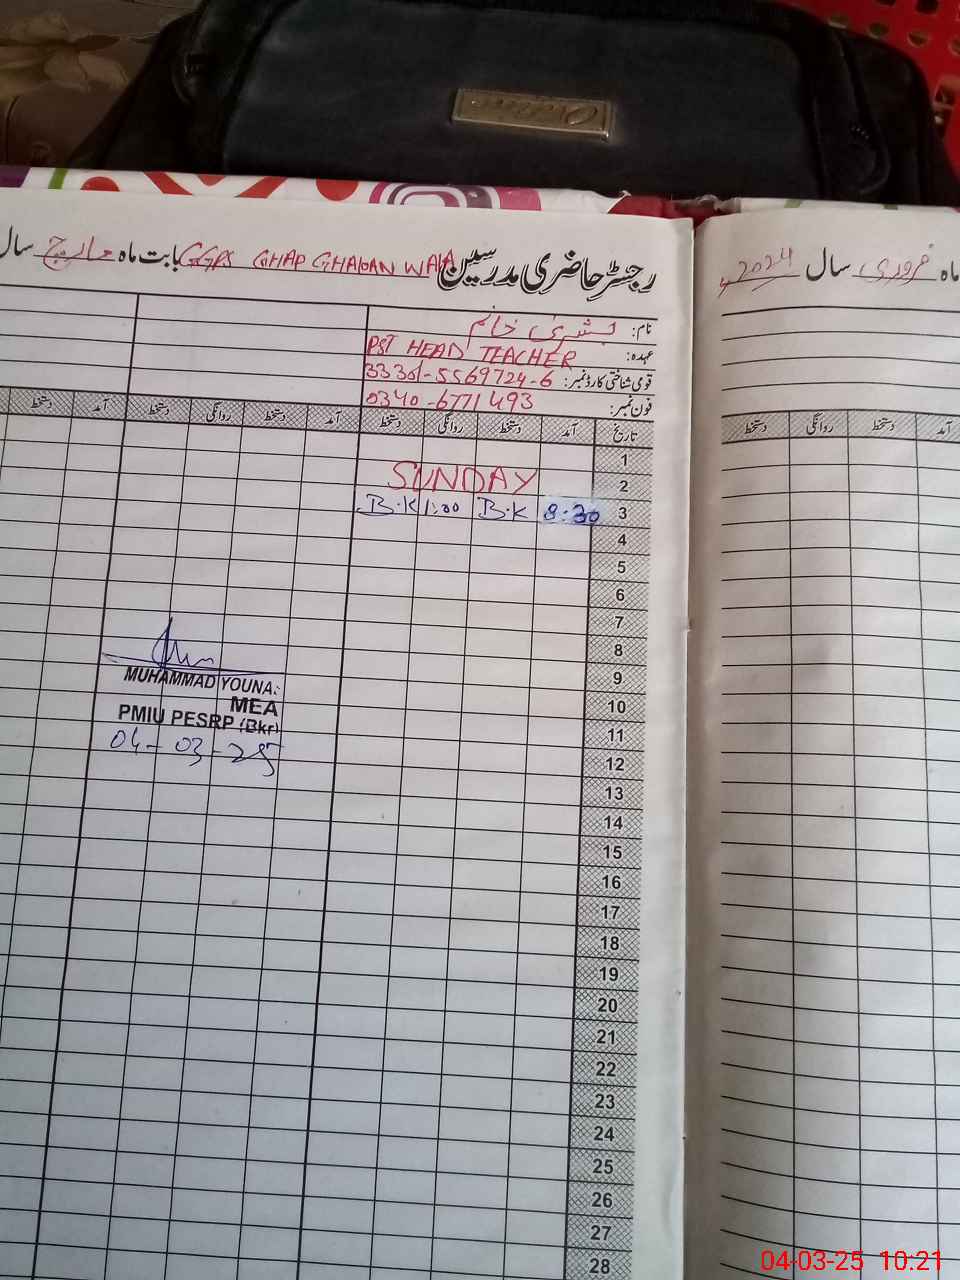 رجسٹر حاضری مدرسین GGPS GHAP GHADAN WALA بابت ماہ مارچ سال
نام: بشریٰ خانم
عہدہ: PST HEAD TEACHER
قومی شناختی کارڈ نمبر: 33301-5569724-6
فون نمبر: 0340-6771493
تاریخ آمد دستخط روانگی دستخط آمد دستخط روانگی دستخط آمد دستخط
1
2 SUNDAY
3 8:30 B.K 1:00 B.K
4
5
6
7
8
9
10
11
12
13
14
15
16
17
18
19
20
21
22
23
24
25
26
27
28
MUHAMMAD YOUNA
MEA
PMIU PESRP (Bkr)
04-03-25
ماہ فروری سال 2024
آمد دستخط روانگی دستخط
04-03-25 10:21